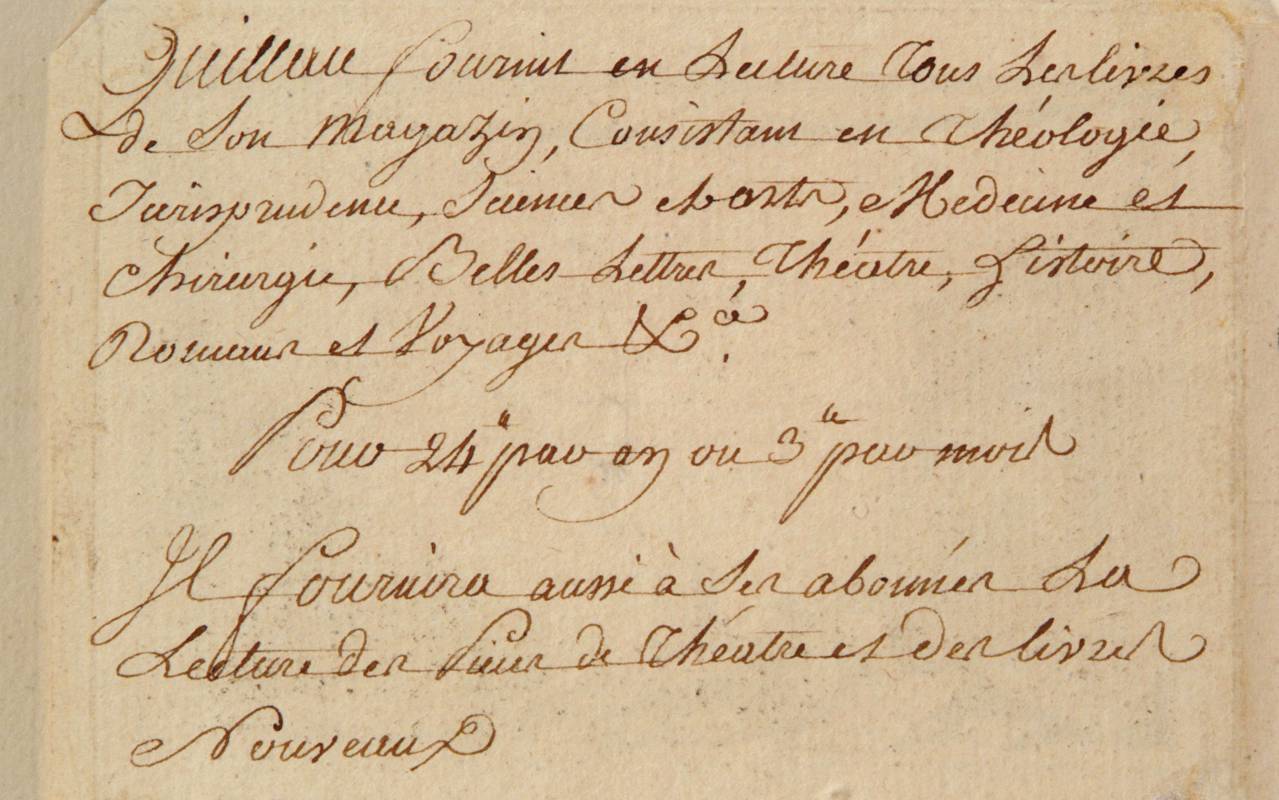 Quillau fournit en Lecture Tous Les livres
de Son magazin, Consistant en Théologie,
Jurisprudence, Sciences et arts, Medecine et
Chirurgie, Belles Lettres, Théatre, histoire,
Romans et Voyages &ca.
Pour 24tt par an ou 3tt par mois
Il fournira aussi à Ses abonnés La
Lecture des Pieces de Théatre et des livres
Nouveaux